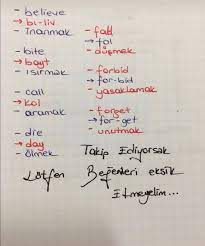 - believe
→ bi-liv
- inanmak
- bite
→ bayt
- ısırmak
- call
→ kol
- aramak
- die
→ day
- ölmek
- fall
→ fol
- düşmek
- forbid
→ for-bid
- yasaklamak
- forget
→ for-get
- unutmak
Takip Ediyorsak
Lütfen Beğenileri eksik
Etmeyelim...